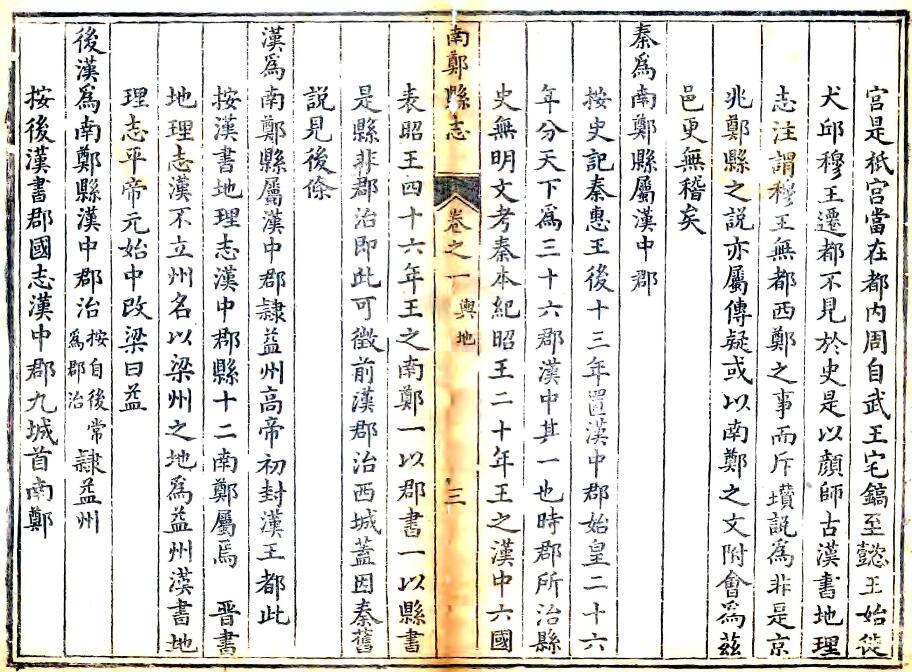 宫是祇宫當在都内周自武王宅鎬至懿王始徙
犬邱穆王遷都不見於史是以顔師古漢書地理
志注謂穆王無都西鄭之事而斥瓚説爲非是京
兆鄭縣之説亦屬傳疑或以南鄭之文附會爲兹
邑更無稽矣
秦爲南鄭縣屬漢中郡
按史記秦惠王後十三年置漢中郡始皇二十六
年分天下爲三十六郡漢中其一也時郡所治縣
史無明文考秦本紀昭王二十年王之漢中六國
南鄭縣志 卷之一 輿地 三
表昭王四十六年王之南鄭一以郡書一以縣書
是縣非郡治即此可徵前漢郡治西城蓋因秦舊
説見後條
漢爲南鄭縣屬漢中郡隷益州高帝初封漢王都此
按漢書地理志漢中郡縣十二南鄭屬焉 晋書
地理志漢不立州名以梁州之地爲益州漢書地
理志平帝元始中改梁曰益
後漢爲南鄭縣漢中郡治按自後常爲郡治隷益州
按後漢書郡國志漢中郡九城首南鄭